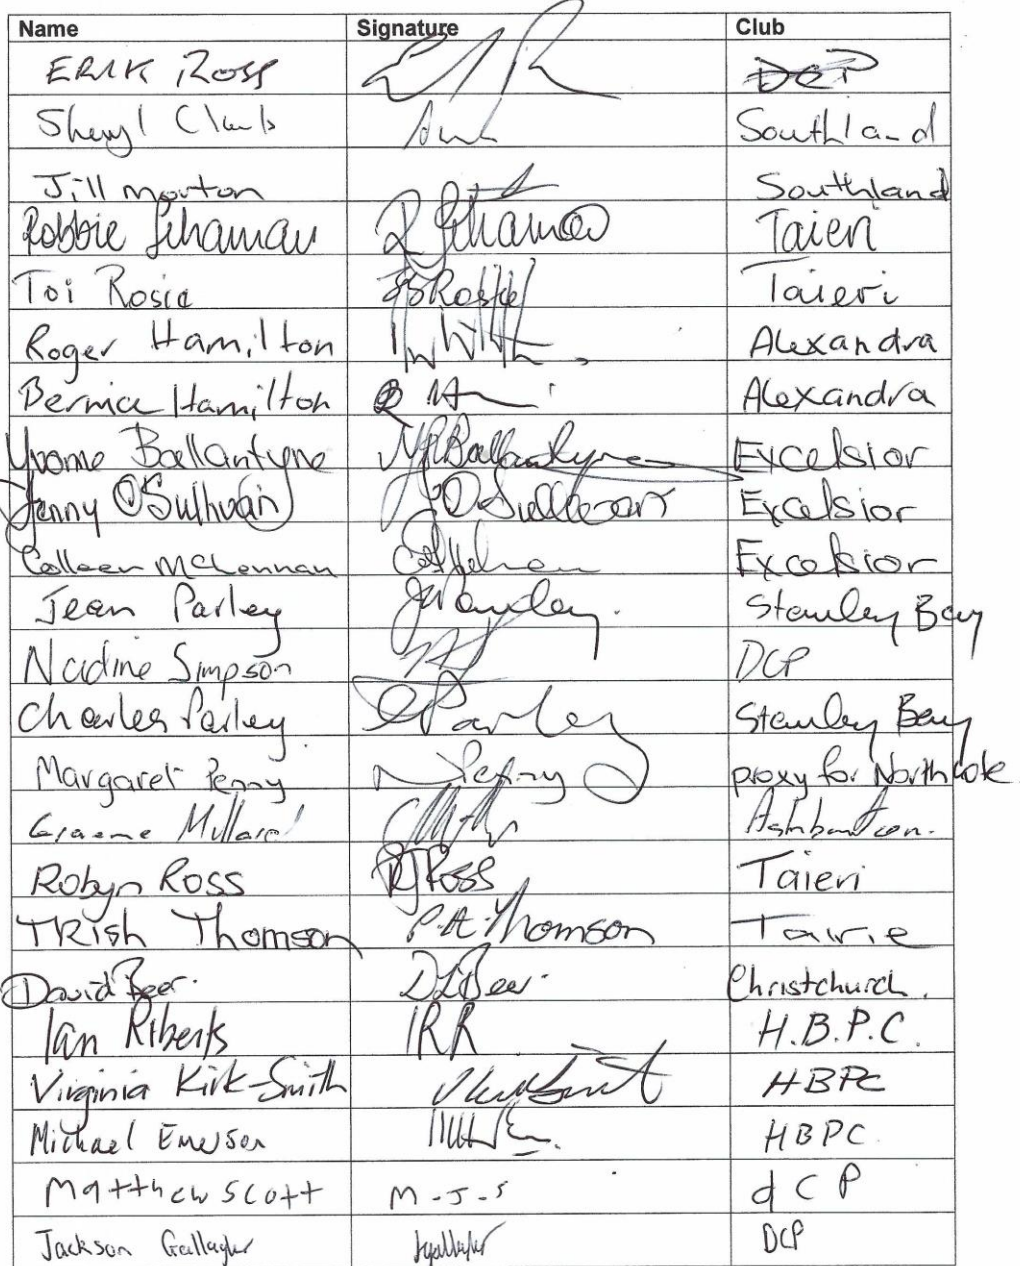 Name Signature Club
ERIK ROSS DCP
Sheryl Southland
Jill Morton Southland
Robbie R Taieri
Toi Rosie Taieri
Roger Hamilton Alexandra
Bernice Hamilton Alexandra
Yvonne Ballantyne Ballantyne Excelsior
Jenny O'Sullivan J O'Sullivan Excelsior
Colleen McLennan Excelsior
Jean Parley Stanley Bay
Nadine Simpson DCP
Charles Parley C Parley Stanley Bay
Margaret Penny Penny proxy for Northcote
Graeme Millard Ashburton.
Robyn Ross RJ Ross Taieri
TRish Thomson P.A. Thomson Tairie
David Beer. D L Beer. Christchurch.
Ian Roberts IRR H.B.P.C.
Virginia Kirk-Smith HBPC
Michael Emerson HBPC
Matthew Scott M-J-S dCP
Jackson Gallagher DCP